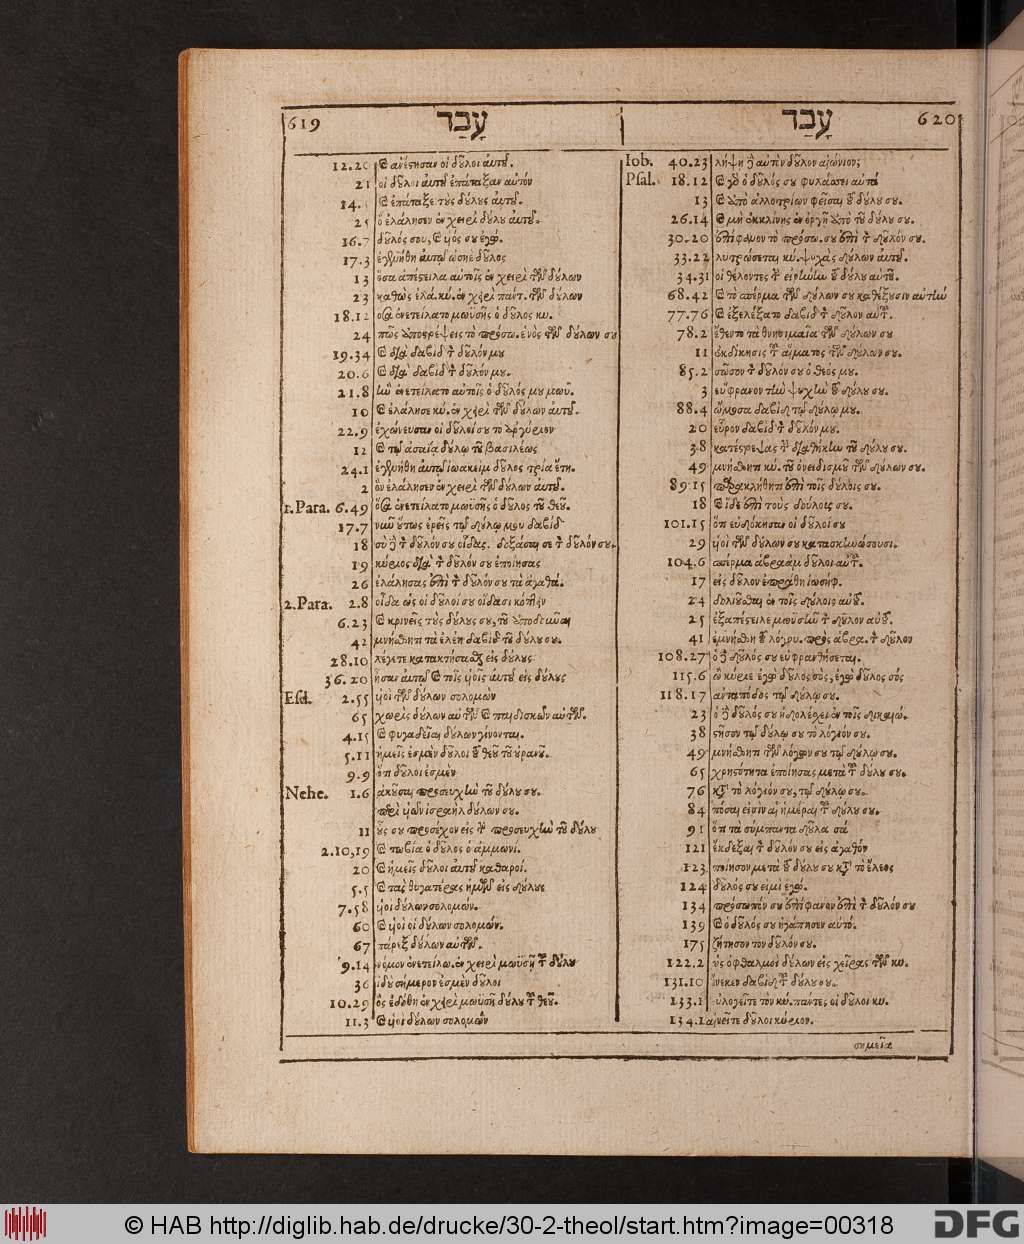 619 עָבַד
12.20 Ϲ ἀνέςησαν οἱ δοῦλοι αὐτοῦ.
21 οἱ δοῦλοι αὐτοῦ ἐπάταξαν αὐτόν
14. Ϲ ἐπάταξε τοὺς δούλους αὐτοῦ.
25 ὃ ἐλάλησεν ἐν χειρὶ δούλου αὐτοῦ.
16.7 δοῦλός σου, Ϲ υἱός σου ἐγώ.
17.3 ἐγενήθη αὐτῷ ὡσηὲ δοῦλος
13 ὅσα ἀπέςειλα αὐτοῖς ἐν χειρὶ τῶν δούλων
23 καθὼς ἐλά. κύ. ἐν χειρὶ πάντ. τῶν δούλων
18.12 ὅσα ἐνετείλατο μωϋσῆς ὁ δοῦλος κυ.
24 πῶς ἀποςρέψεις τὸ πρόσω. ἑνὸς τῶν δούλων σου
19.34 Ϲ διὰ δαβὶδ τὸν δοῦλόν μου
20.6 Ϲ διὰ δαβὶδ τὸν δοῦλόν μου.
21.8 ἣν ἐνετείλατο αὐτοῖς ὁ δοῦλός μου μωυ.
10 Ϲ ἐλάλησε κύ. ἐν χειρὶ τῶν δούλων αὐτοῦ.
22.9 ἐχώνευσαν οἱ δοῦλοί σου τὸ ἀργύριον
12 Ϲ τῷ ἀσαΐα δούλῳ τοῦ βασιλέως
24.1 ἐγενήθη αὐτῷ ἰωακεὶμ δοῦλος τρία ἔτη.
2 ὃν ἐλάλησεν ἐν χειρὶ τῶν δούλων αὐτοῦ.
1.Para. 6.49 ὅσα ἐνετείλατο μωϋσῆς ὁ δοῦλος τοῦ θεοῦ.
17.7 νῦν οὕτως ἐρεῖς τῷ δούλῳ μου δαβίδ
18 σὺ τὸν δοῦλόν σου οἶδας. δοξάσαι σε τὸν δοῦλόν σου.
19 κύριος διὰ τὸν δοῦλόν σου ἐποίησας
26 ἐλάλησας ἐπὶ τὸν δοῦλόν σου τὰ ἀγαθά.
2.Para. 2.8 οἶδα ὡς οἱ δοῦλοί σου οἴδασι κόπτειν
6.23 Ϲ κρινεῖς τοὺς δούλους σου, τοῦ ἀποδοῦναι
42 μνήσθητι τὰ ἐλέη δαβὶδ τοῦ δούλου σου.
28.10 λέγετε κατακτήσασθαι εἰς δούλους
36.20 ἦσαν αὐτῷ Ϲ τοῖς υἱοῖς αὐτοῦ εἰς δούλους
Esd. 2.55 υἱοὶ τῶν δούλων σολομὼν
65 χωρὶς δούλων αὐτῶν Ϲ παιδισκῶν αὐτῶν.
4.15 Ϲ φυγαδεῖαι δούλων γίνονται.
5.11 ἡμεῖς ἐσμὲν δοῦλοι τοῦ θεοῦ τοῦ οὐρανοῦ.
9.9 ὅτι δοῦλοι ἐσμὲν
Nehe. 1.6 ἀκοῦσαι προσευχὴν τοῦ δούλου σου.
περὶ υἱῶν ἰσραὴλ δούλων σου.
11 οὖς σου προσέχον εἰς τὴν προσευχὴν τοῦ δούλου
2.10,19 Ϲ τωβία ὁ δοῦλος ὁ ἀμμωνί.
20 Ϲ ἡμεῖς δοῦλοι αὐτοῦ καθαροί.
5.5 Ϲ τὰς θυγατέρας ἡμῶν εἰς δούλους
7.58 υἱοὶ δούλων σολομών.
60 Ϲ υἱοὶ οἱ δούλων σολομών.
67 πάρεξ δούλων αὐτῶν.
9.14 νόμον ἐνετείλω. ἐν χειρὶ μωϋσῆ τοῦ δούλου
36 ἰδοὺ σήμερον ἐσμὲν δοῦλοι
10.29 ὃς ἐδόθη ἐν χειρὶ μωϋσῆ δούλου τοῦ θεοῦ.
11.3 Ϲ υἱοὶ δούλων σολομὼν
עָבַד 620
Iob. 40.23 λήψῃ αὐτὸν δοῦλον αἰώνιον;
Psal. 18.12 Ϲ γὰρ ὁ δοῦλός σου φυλάσσει αὐτά
13 Ϲ ἀπὸ ἀλλοτρίων φεῖσαι τοῦ δούλου σου.
26.14 Ϲ μὴ ἐκκλίνῃς ἐν ὀργῇ ἀπὸ τοῦ δούλου σου.
30.20 ἐπίφανον τὸ πρόσω. σου ἐπὶ τὸν δοῦλόν σου.
33.22 λυτρώσεται κύ. ψυχὰς δούλων αὐτοῦ.
34.31 οἱ θέλοντες τὴν εἰρήνην τοῦ δούλου αὐτοῦ.
68.42 Ϲ τὸ σπέρμα τῶν δούλων σου καθέξουσιν αὐτὴν
77.76 Ϲ ἐξελέξατο δαβὶδ τὸν δοῦλον αὐτοῦ.
78.2 ἔθεντο τὰ θνησιμαῖα τῶν δούλων σου
11 ἐκδίκησις τοῦ αἵματος τῶν δούλων σου.
85.2 σῶσον τὸν δοῦλόν σου ὁ θεός μου.
3 εὔφρανον τὴν ψυχὴν τοῦ δούλου σου.
88.4 ὤμοσα δαβὶδ τῷ δούλῳ μου.
20 εὗρον δαβὶδ τὸν δοῦλόν μου.
38 κατέςρεψας τὴν διαθήκην τοῦ δούλου σου.
49 μνήσθητι κύ. τοῦ ὀνειδισμοῦ τῶν δούλων σου.
89.15 παρακλήθητι ἐπὶ τοῖς δούλοις σου.
18 Ϲ ἴδε ἐπὶ τοὺς δούλους σου.
101.15 ὅτι εὐδόκησαν οἱ δοῦλοί σου
29 υἱοὶ τῶν δούλων σου κατασκηνώσουσι.
104.6 σπέρμα ἀβραὰμ δοῦλοι αὐτοῦ.
17 εἰς δοῦλον ἐπράθη ἰωσήφ.
24 δολιοῦσθαι ἐν τοῖς δούλοις αὐτοῦ.
25 ἐξαπέςειλε μωϋσῆν τὸν δοῦλον αὐτοῦ.
41 ἐμνήσθη τοῦ λόγου. πρὸς ἀβρα. τὸν δοῦλον
108.27 ὁ δὲ δοῦλός σου εὐφρανθήσεται.
115.6 ὦ κύριε ἐγὼ δοῦλος σὸς, ἐγὼ δοῦλος σός
118.17 ἀνταπόδος τῷ δούλῳ σου.
23 ὁ δὲ δοῦλός σου ἠδολέσχει ἐν τοῖς δικαιώ.
38 ςῆσον τῷ δούλῳ σου τὸ λόγιόν σου.
49 μνήσθητι τῶν λόγων σου τῷ δούλῳ σου.
65 χρηςότητα ἐποίησας μετὰ τοῦ δούλου σου.
76 κατὰ τὸ λόγιόν σου, τῷ δούλῳ σου.
84 πόσαι εἰσὶν αἱ ἡμέραι τοῦ δούλου σου.
91 ὅτι τὰ σύμπαντα δοῦλα σά
121 ἔκδεξαι τὸν δοῦλόν σου εἰς ἀγαθόν
123 ποίησον μετὰ τοῦ δούλου σου κατὰ τὸ ἔλεος
124 δοῦλός σου εἰμὶ ἐγώ.
134 πρόσωπόν σου ἐπίφανον ἐπὶ τὸν δοῦλόν σου
139 Ϲ ὁ δοῦλός σου ἠγάπησεν αὐτό.
175 ζήτησον τὸν δοῦλόν σου.
122.2 ὡς ὀφθαλμοὶ δούλων εἰς χεῖρας τῶν κυ.
131.10 ἕνεκεν δαβὶδ τοῦ δούλου σου.
133.1 εὐλογεῖτε τὸν κύ. πάντες οἱ δοῦλοι κυ.
134.1 αἰνεῖτε δοῦλοι κύριον.
σημεῖα
© HAB http://diglib.hab.de/drucke/30-2-theol/start.htm?image=00318
DFG